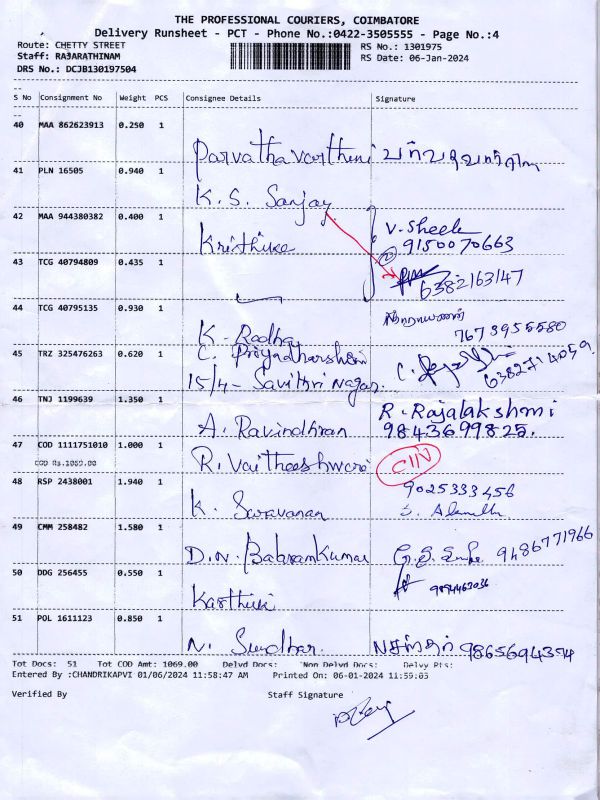 THE PROFESSIONAL COURIERS, COIMBATORE
Delivery Runsheet - PCT - Phone No.:0422-3505555 - Page No.:4
Route: CHETTY STREET
RS No.: 1301975
Staff: RAJARATHINAM
RS Date: 06-Jan-2024
DRS No.: DCJB130197504
S No Consignment No Weight PCS Consignee Details Signature
40 MAA 862623913 0.250 1
Parvathavarthini
41 PLN 16505 0.940 1
K. S. Sanjay
42 MAA 944380382 0.400 1
V. Sheela
Krithika 9150070663
43 TCG 40794809 0.435 1
6382163147
44 TCG 40795135 0.930 1
நாராயணன்
K. Radha 7673955580
45 TRZ 325476263 0.620 1
C. Priyadharshini
15/4 - Savithri Nagar. 6382714059
46 TNJ 1199639 1.350 1
R. Rajalakshmi
A. Ravindhran 9843699825.
47 COD 1111751010 1.000 1
COD Rs.1069.00
R. Vaitheeshwari
48 RSP 2438001 1.940 1
9025333456
K. Saravanan
49 CMM 258482 1.580 1
D.N. Balaramkumar 9486771966
50 DDG 256455 0.550 1
9894467036
Karthiki
51 POL 1611123 0.850 1
N. Sundhar. 9865694374
Tot Docs: 51 Tot COD Amt: 1069.00 Delvd Docs: Non Delvd Docs: Delvy Pts:
Entered By :CHANDRIKAPVI 01/06/2024 11:58:47 AM Printed On: 06-01-2024 11:59:03
Verified By Staff Signature